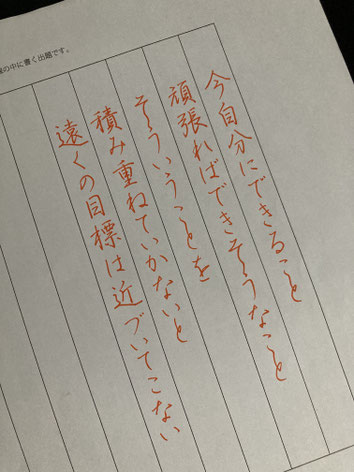 の中に書く出題です。
今自分にできること
頑張ればできそうなこと
そういうことを
積み重ねていかないと
遠くの目標は近づいてこない